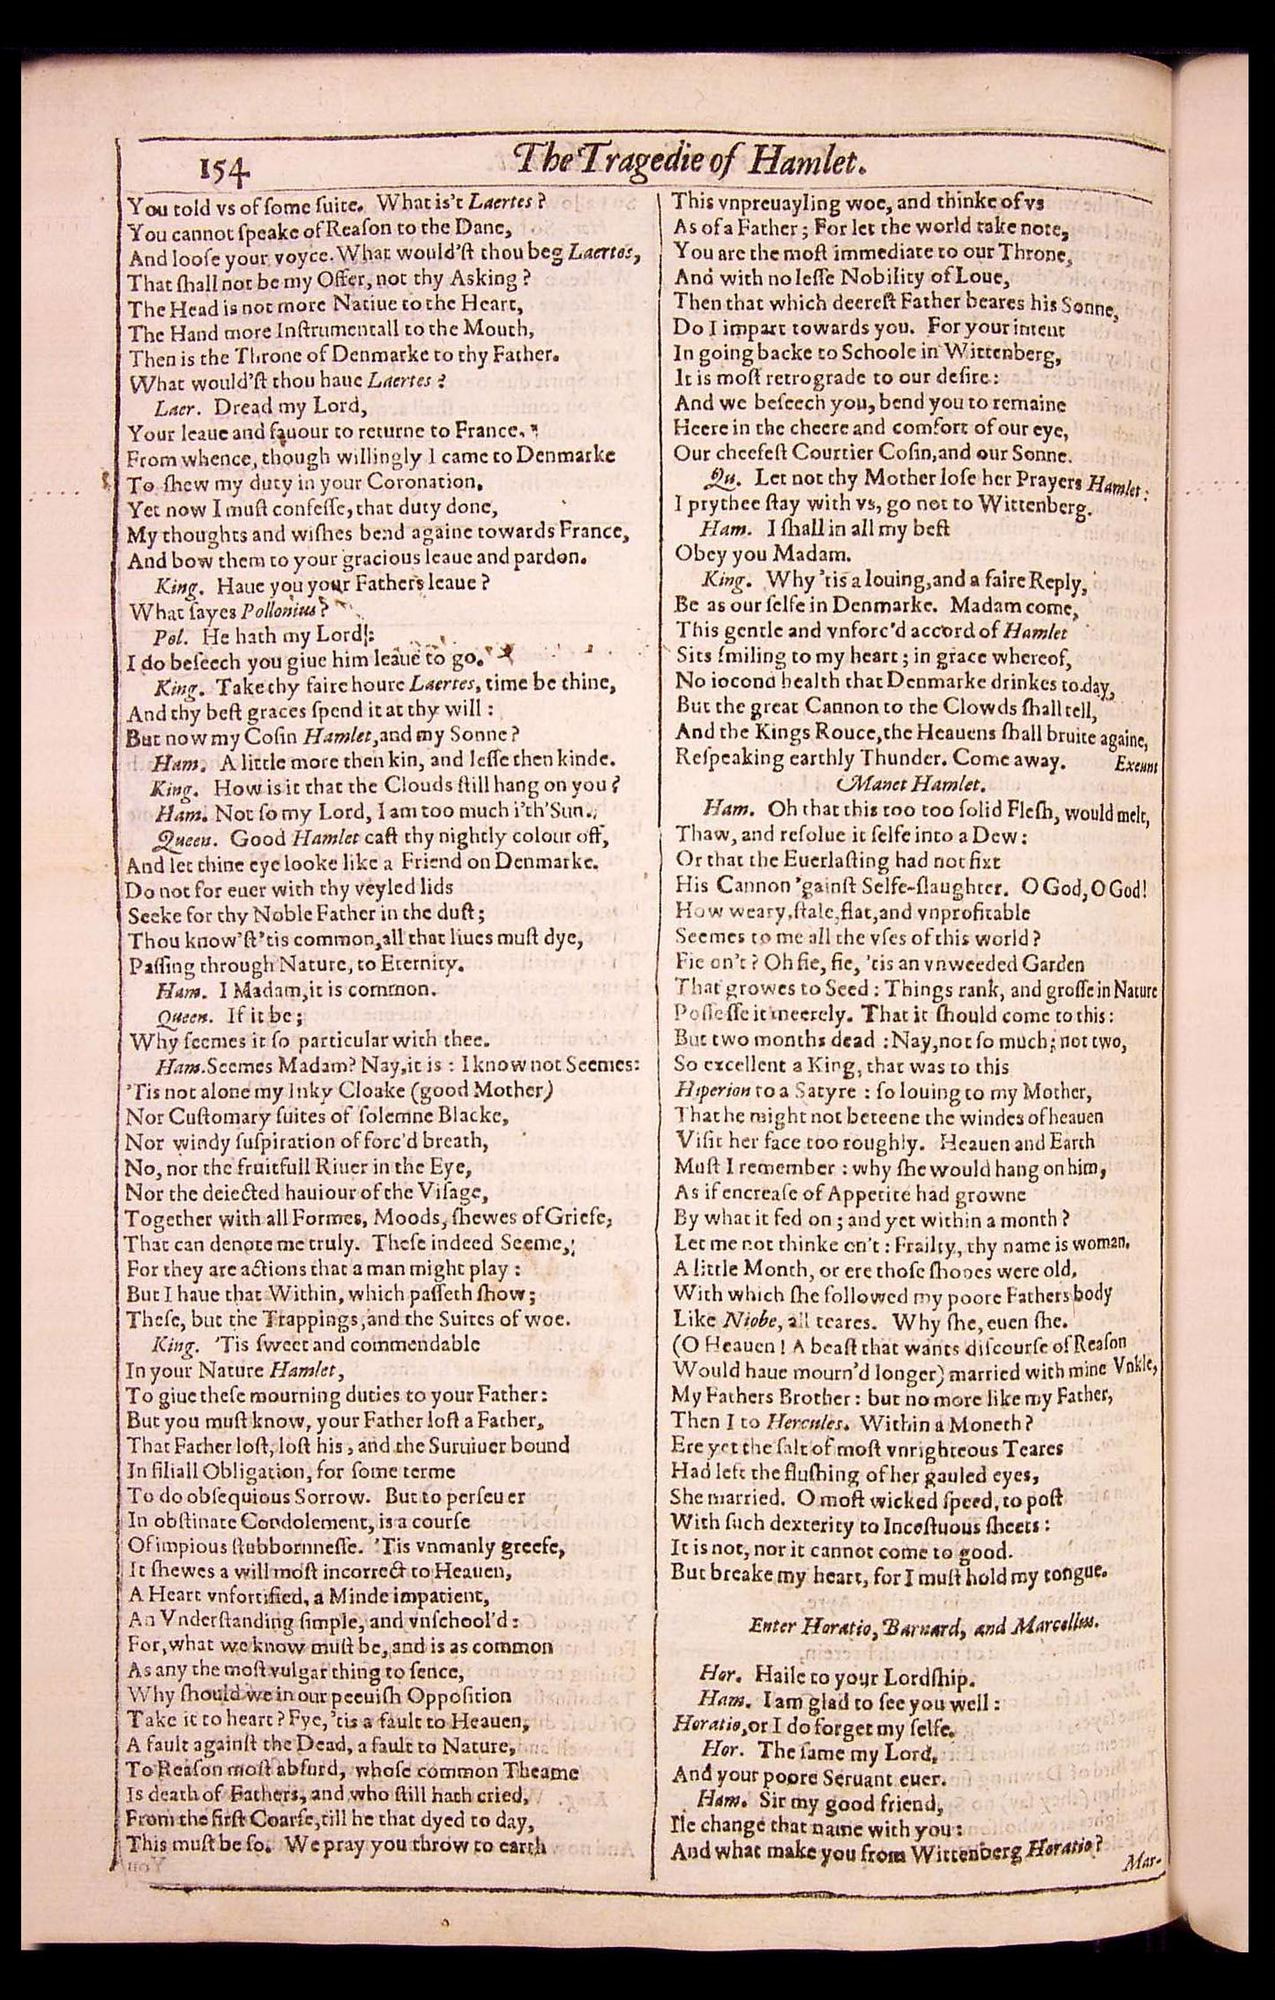 154
The Tragedie of Hamlet.
You told vs of ſome ſuite. What is't Laertes?
You cannot ſpeake of Reaſon to the Dane,
And looſe your voyce. What would'ſt thou beg Laertes,
That ſhall not be my Offer, not thy Asking?
The Head is not more Natiue to the Heart,
The Hand more Inſtrumentall to the Mouth,
Then is the Throne of Denmarke to thy Father.
What would'ſt thou haue Laertes?
Laer. Dread my Lord,
Your leaue and fauour to returne to France,
From whence, though willingly I came to Denmarke
To ſhew my duty in your Coronation,
Yet now I muſt confeſſe, that duty done,
My thoughts and wiſhes bend againe towards France,
And bow them to your gracious leaue and pardon.
King. Haue you your Fathers leaue?
What ſayes Pollonius?
Pol. He hath my Lord:
I do beſeech you giue him leaue to go.
King. Take thy faire houre Laertes, time be thine,
And thy beſt graces ſpend it at thy will:
But now my Coſin Hamlet, and my Sonne?
Ham. A little more then kin, and leſſe then kinde.
King. How is it that the Clouds ſtill hang on you?
Ham. Not ſo my Lord, I am too much i'th'Sun.
Queen. Good Hamlet caſt thy nightly colour off,
And let thine eye looke like a Friend on Denmarke.
Do not for euer with thy veyled lids
Seeke for thy Noble Father in the duſt;
Thou know'ſt 'tis common, all that liues muſt dye,
Paſſing through Nature, to Eternity.
Ham. I Madam, it is common.
Queen. If it be;
Why ſeemes it ſo particular with thee.
Ham. Seemes Madam? Nay, it is: I know not Seemes:
'Tis not alone my Inky Cloake (good Mother)
Nor Cuſtomary ſuites of ſolemne Blacke,
Nor windy ſuſpiration of forc'd breath,
No, nor the fruitfull Riuer in the Eye,
Nor the deiected hauiour of the Viſage,
Together with all Formes, Moods, ſhewes of Griefe,
That can denote me truly. Theſe indeed Seeme,
For they are actions that a man might play:
But I haue that Within, which paſſeth ſhow;
Theſe, but the Trappings, and the Suites of woe.
King. 'Tis ſweet and commendable
In your Nature Hamlet,
To giue theſe mourning duties to your Father:
But you muſt know, your Father loſt a Father,
That Father loſt, loſt his, and the Suruiuer bound
In filiall Obligation, for ſome terme
To do obſequious Sorrow. But to perſeuer
In obſtinate Condolement, is a courſe
Of impious ſtubbornneſſe. 'Tis vnmanly greefe,
It ſhewes a will moſt incorrect to Heauen,
A Heart vnfortified, a Minde impatient,
An Vnderſtanding ſimple, and vnſchool'd:
For, what we know muſt be, and is as common
As any the moſt vulgar thing to ſence,
Why ſhould we in our peeuiſh Oppoſition
Take it to heart? Fye, 'tis a fault to Heauen,
A fault againſt the Dead, a fault to Nature,
To Reaſon moſt abſurd, whoſe common Theame
Is death of Fathers, and who ſtill hath cried,
From the firſt Coarſe, till he that dyed to day,
This muſt be ſo. We pray you throw to earth
This vnpreuayling woe, and thinke of vs
As of a Father; For let the world take note,
You are the moſt immediate to our Throne,
And with no leſſe Nobility of Loue,
Then that which deereſt Father beares his Sonne,
Do I impart towards you. For your intent
In going backe to Schoole in Wittenberg,
It is moſt retrograde to our deſire:
And we beſeech you, bend you to remaine
Heere in the cheere and comfort of our eye,
Our cheefeſt Courtier Coſin, and our Sonne.
Qu. Let not thy Mother loſe her Prayers Hamlet:
I prythee ſtay with vs, go not to Wittenberg.
Ham. I ſhall in all my beſt
Obey you Madam.
King. Why 'tis a louing, and a faire Reply,
Be as our ſelfe in Denmarke. Madam come,
This gentle and vnforc'd accord of Hamlet
Sits ſmiling to my heart; in grace whereof,
No iocond health that Denmarke drinkes to day,
But the great Cannon to the Clowds ſhall tell,
And the Kings Rouce, the Heauens ſhall bruite againe,
Reſpeaking earthly Thunder. Come away. Exeunt
Manet Hamlet.
Ham. Oh that this too too ſolid Fleſh, would melt,
Thaw, and reſolue it ſelfe into a Dew:
Or that the Euerlaſting had not fixt
His Cannon 'gainſt Selfe-ſlaughter. O God, O God!
How weary, ſtale, flat, and vnprofitable
Seemes to me all the vſes of this world?
Fie on't? Oh fie, fie, 'tis an vnweeded Garden
That growes to Seed: Things rank, and groſſe in Nature
Poſſeſſe it meerely. That it ſhould come to this:
But two months dead: Nay, not ſo much; not two,
So excellent a King, that was to this
Hiperion to a Satyre: ſo louing to my Mother,
That he might not beteene the windes of heauen
Viſit her face too roughly. Heauen and Earth
Muſt I remember: why ſhe would hang on him,
As if encreaſe of Appetite had growne
By what it fed on; and yet within a month?
Let me not thinke on't: Frailty, thy name is woman.
A little Month, or ere thoſe ſhooes were old,
With which ſhe followed my poore Fathers body
Like Niobe, all teares. Why ſhe, euen ſhe.
(O Heauen! A beaſt that wants diſcourſe of Reaſon
Would haue mourn'd longer) married with mine Vnkle,
My Fathers Brother: but no more like my Father,
Then I to Hercules. Within a Moneth?
Ere yet the ſalt of moſt vnrighteous Teares
Had left the fluſhing of her gauled eyes,
She married. O moſt wicked ſpeed, to poſt
With ſuch dexterity to Inceſtuous ſheets:
It is not, nor it cannot come to good.
But breake my heart, for I muſt hold my tongue.
Enter Horatio, Barnard, and Marcellus.
Hor. Haile to your Lordſhip.
Ham. I am glad to ſee you well:
Horatio, or I do forget my ſelfe.
Hor. The ſame my Lord,
And your poore Seruant euer.
Ham. Sir my good friend,
Ile change that name with you:
And what make you from Wittenberg Horatio?
Mar-